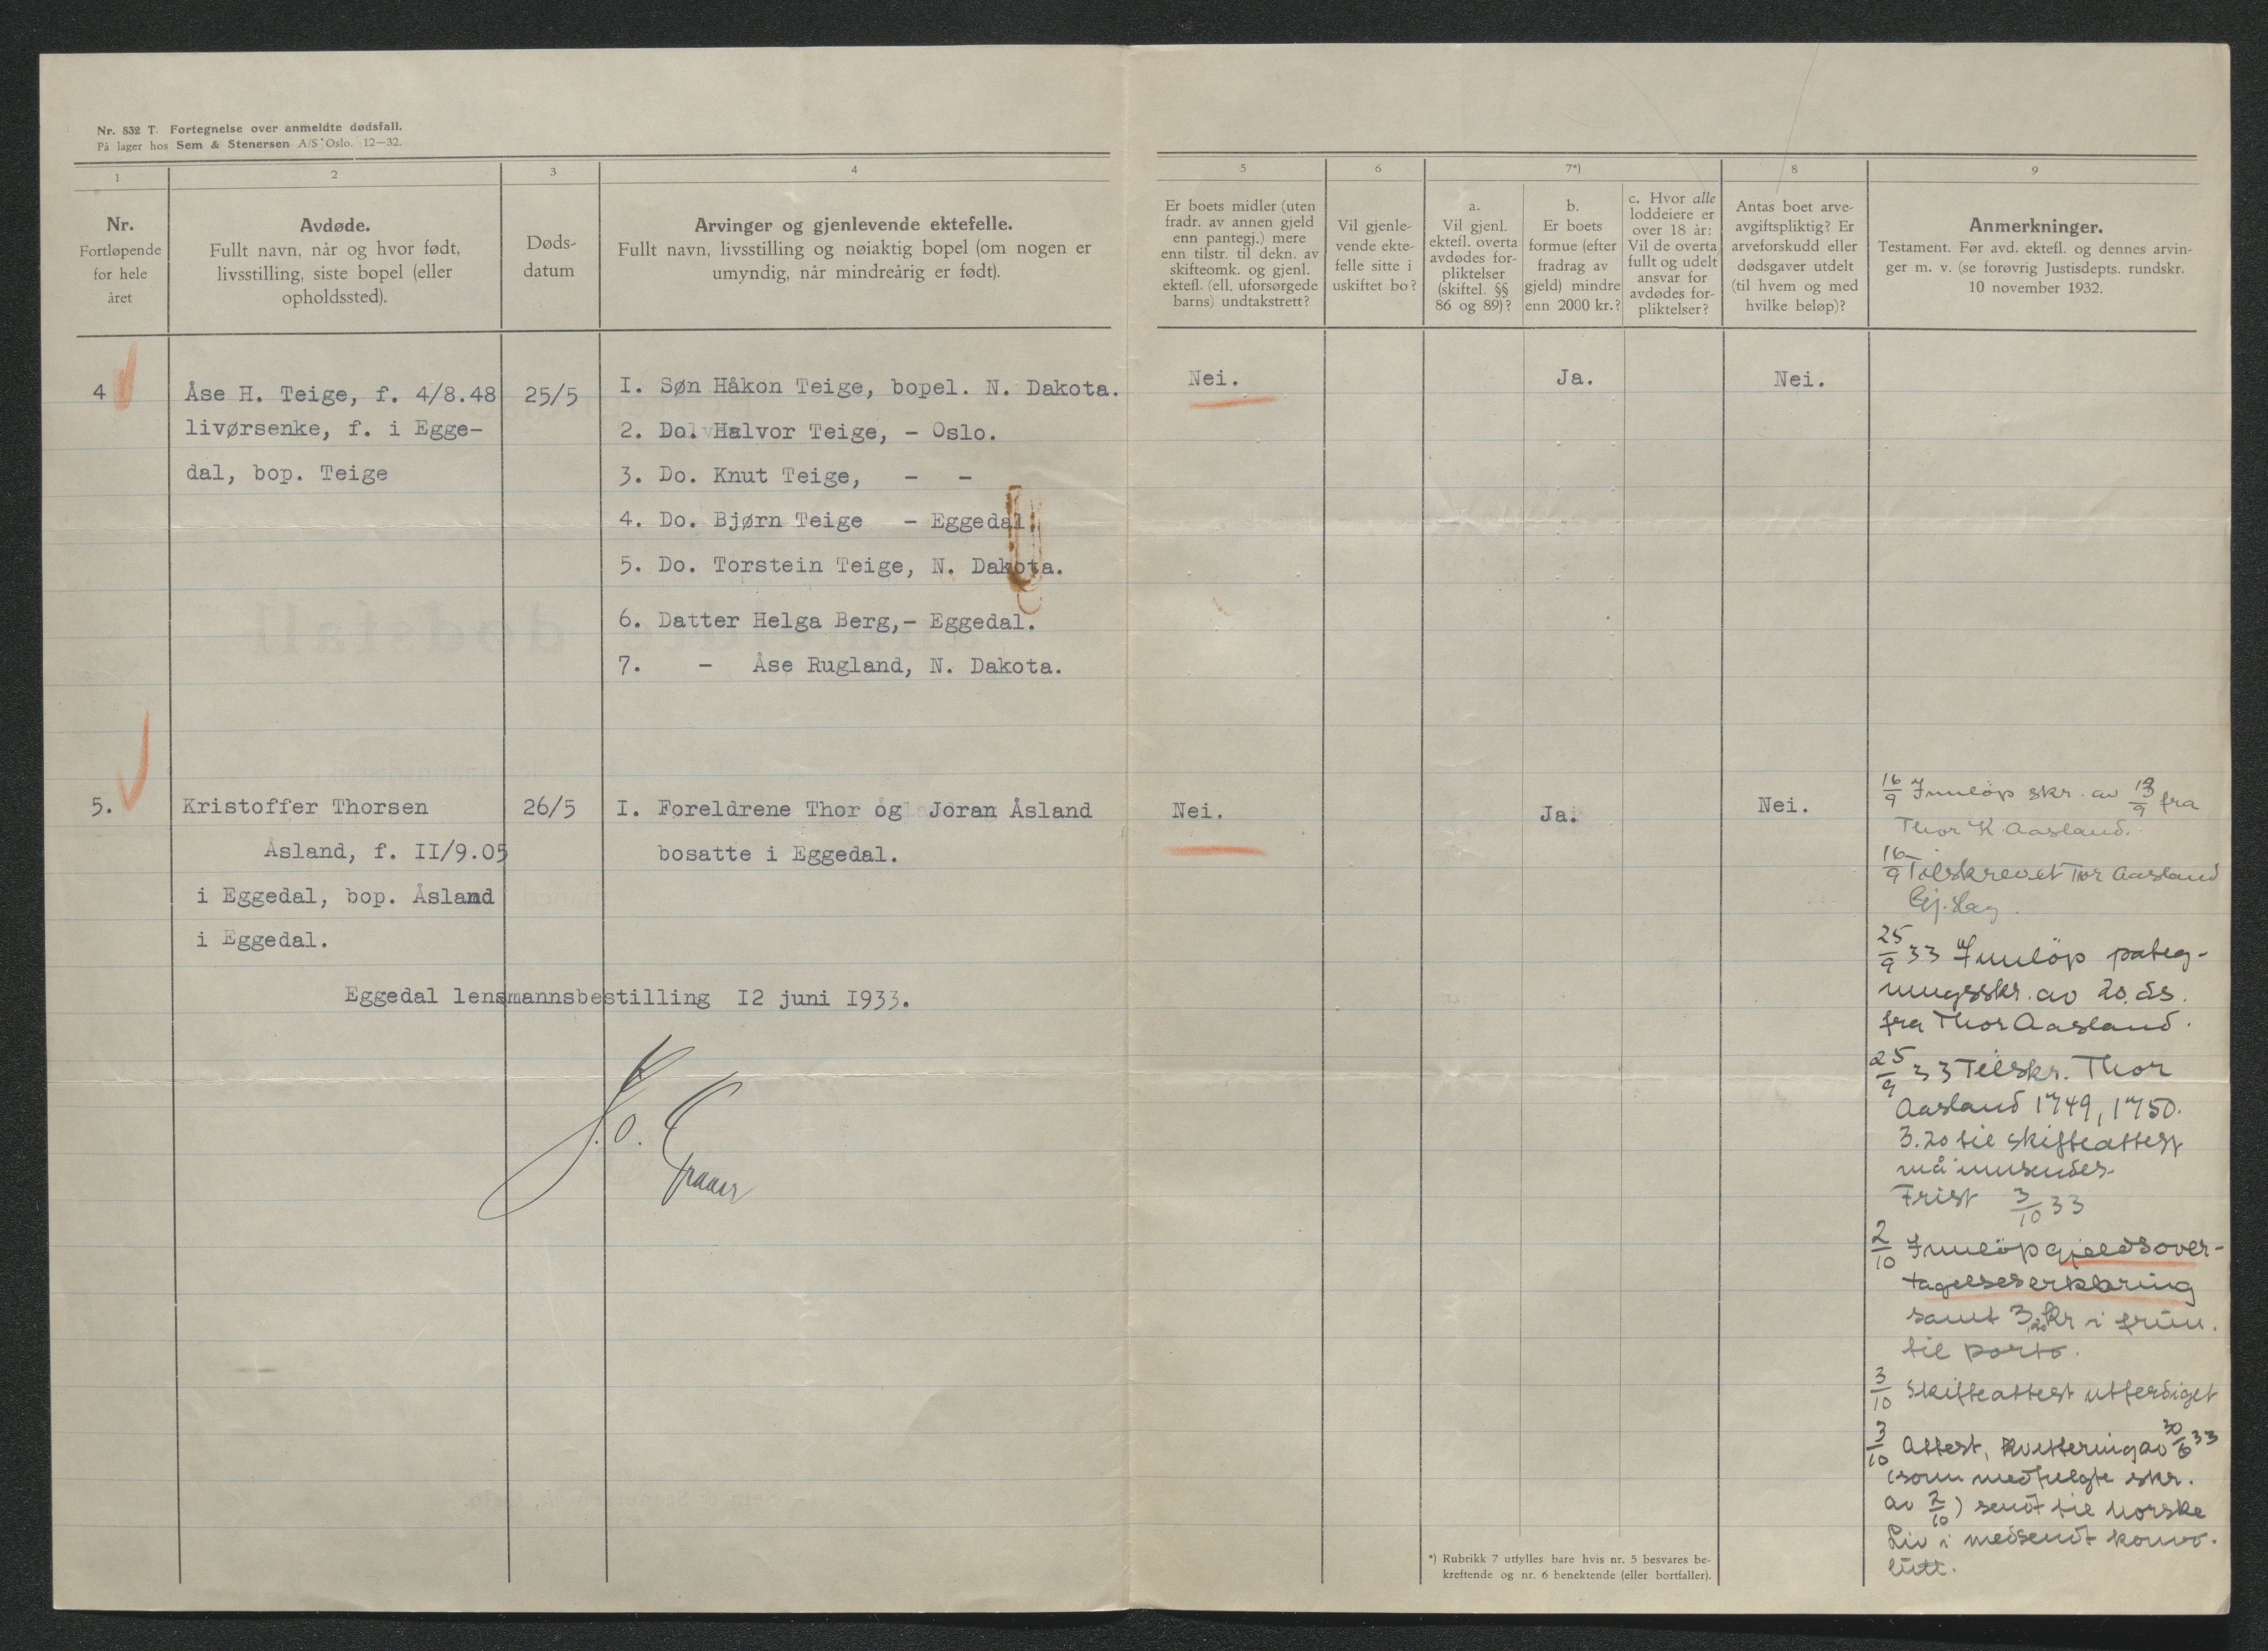 Nr. 832 T. Fortegnelse over anmeldte dødsfall.
På lager hos Sem & Stenersen A/S Oslo. 12—32.
1
2
3
4
5
6
7*)
8
9
Nr.
Fortløpende
for hele
året
Avdøde.
Fullt navn, når og hvor født,
livsstilling, siste bopel (eller
opholdssted).
Døds-
datum
Arvinger og gjenlevende ektefelle.
Fullt navn, livsstilling og nøiaktig bopel (om nogen er
umyndig, når mindreårig er født).
Er boets midler (uten
fradr. av annen gjeld
enn pantegj.) mere
enn tilstr. til dekn. av
skifteomk. og gjenl.
ektefl. (ell. uforsørgede
barns) undtakstrett?
Vil gjenle-
vende ekte-
felle sitte i
uskiftet bo?
a.
Vil gjenl.
ektefl. overta
avdødes for-
pliktelser
(skiftel. §§
86 og 89)?
b.
Er boets
formue (efter
fradrag av
gjeld) mindre
enn 2000 kr.?
c. Hvor alle
loddeiere er
over 18 år:
Vil de overta
fullt og udelt
ansvar for
avdødes for-
pliktelser?
Antas boet arve-
avgiftspliktig? Er
arveforskudd eller
dødsgaver utdelt
(til hvem og med
hvilke beløp)?
Anmerkninger.
Testament. Før avd. ektefl. og dennes arvin-
ger m. v. (se forøvrig Justisdepts. rundskr.
10 november 1932.
4
Åse H. Teige, f. 4/8.48
livørsenke, f. i Egge-
dal, bop. Teige
25/5
I. Søn Håkon Teige, bopel. N. Dakota.
2. Do. Halvor Teige, - Oslo.
3. Do. Knut Teige, - -
4. Do. Bjørn Teige - Eggedal.
5. Do. Torstein Teige, N. Dakota.
6. Datter Helga Berg,- Eggedal.
7. - Åse Rugland, N. Dakota.
Nei.
Ja.
Nei.
5.
Kristoffer Thorsen
Åsland, f. II/9.05
i Eggedal, bop. Åsland
i Eggedal.
26/5
I. Foreldrene Thor og Joran Åsland
bosatte i Eggedal.
Nei.
Ja.
Nei.
Eggedal lensmannsbestilling I2 juni I933.
16/9 Innløp skr. av 13/9 fra
Thor K Aasland.
16/9 Tilskrevet Thor Aasland
25/9 33 Innløp påteg-
ningsskr. av 20. ds.
fra Thor Aasland.
25/9 33 Tilskr. Thor
Aasland 1749, 1750.
3.20 til skifteattest
må innsendes
Frist 3/10 33
2/10 Innløp gjeldsover-
tagelseserklæring
samt 3,20 kr i frim.
til porto.
3/10 Skifteattest utferdiget
3/10 Attest, kvittering av 30/6 33
(som medfulgte skr.
av 2/10) sendt til Norske
Liv i medsendt konvo-
lutt.
*) Rubrikk 7 utfylles bare hvis nr. 5 besvares be-
kreftende og nr. 6 benektende (eller bortfaller).